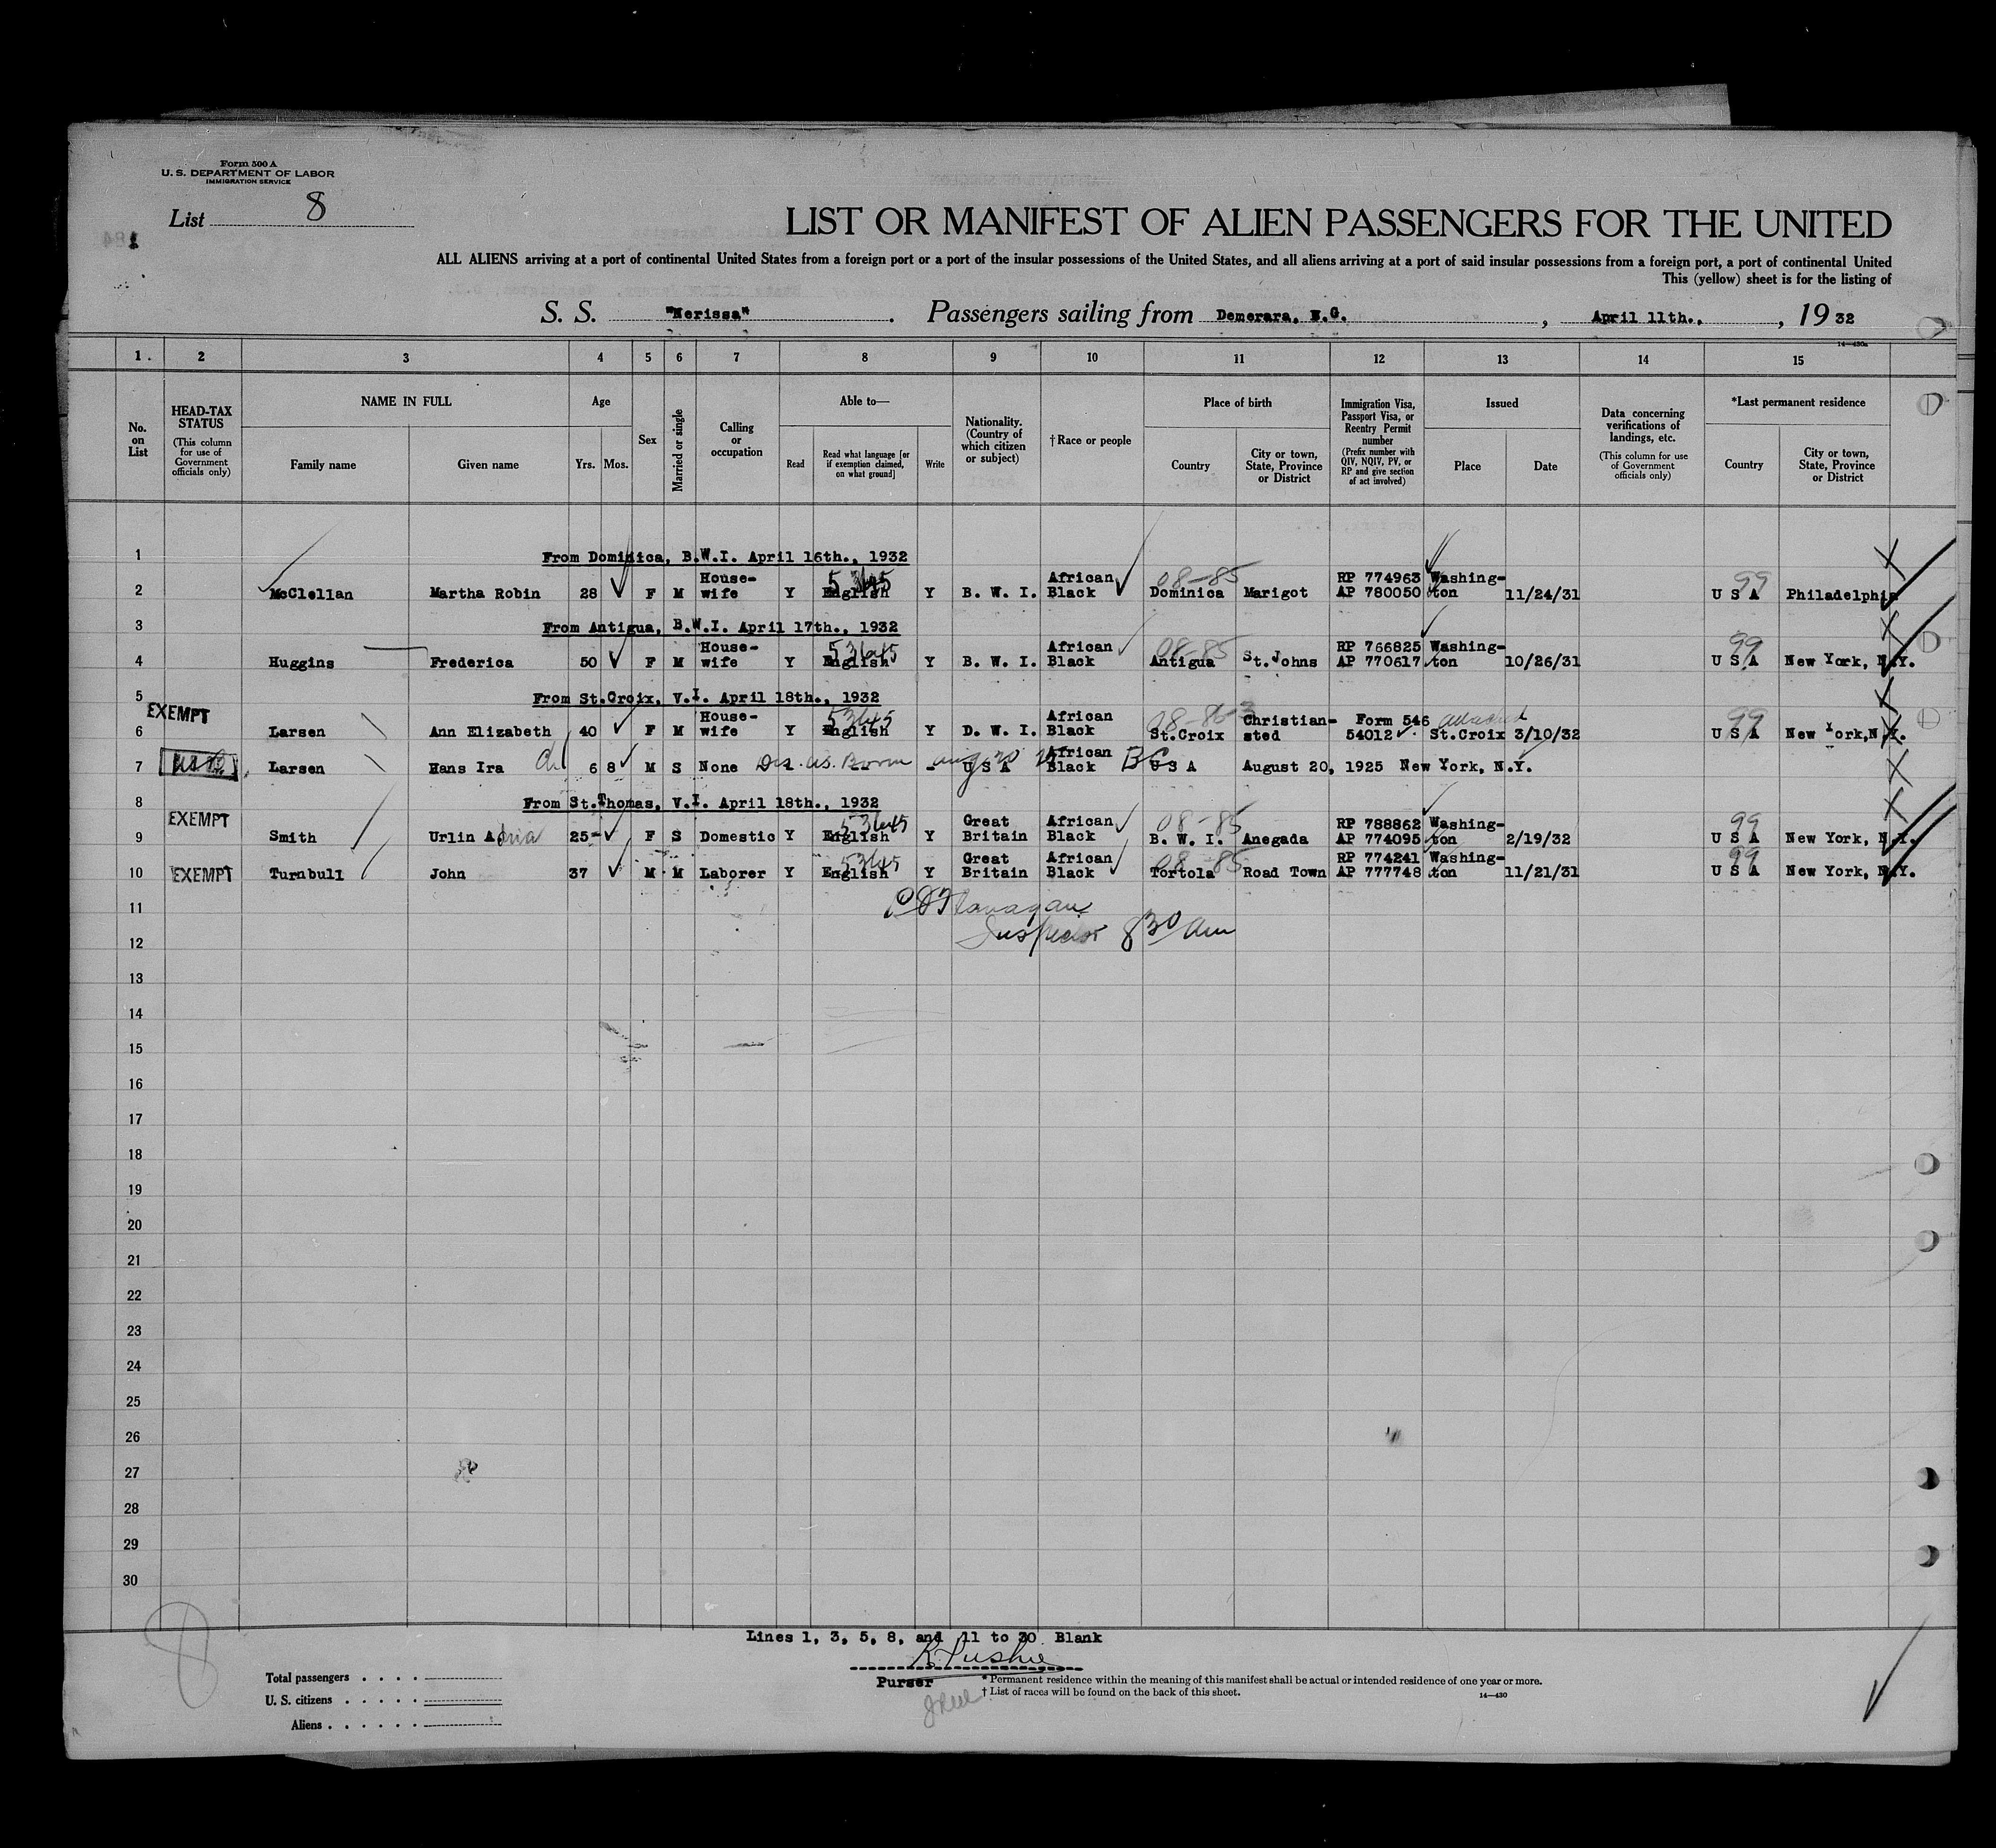 Form 500 A
U. S. DEPARTMENT OF LABOR
IMMIGRATION SERVICE
List 8
LIST OR MANIFEST OF ALIEN PASSENGERS FOR THE UNITED
ALL ALIENS arriving at a port of continental United States from a foreign port or a port of the insular possessions of the United States, and all aliens arriving at a port of said insular possessions from a foreign port, a port of continental United
This (yellow) sheet is for the listing of
S. S. "Nerissa". Passengers sailing from Demerara, B.G., April 11th., 1932
14—430a
1 2 3 4 5 6 7 8 9 10 11 12 13 14 15
No. on List
HEAD-TAX STATUS (This column for use of Government officials only)
NAME IN FULL
Family name Given name
Age
Yrs. Mos.
Sex
Married or single
Calling or occupation
Able to—
Read Read what language [or if exemption claimed, on what ground] Write
Nationality. (Country of which citizen or subject)
† Race or people
Place of birth
Country City or town, State, Province or District
Immigration Visa, Passport Visa, or Reentry Permit number (Prefix number with QIV, NQIV, PV, or RP and give section of act involved)
Issued
Place Date
Data concerning verifications of landings, etc. (This column for use of Government officials only)
*Last permanent residence
Country City or town, State, Province or District
1 From Dominica, B.W.I. April 16th., 1932
2 McClellan Martha Robin 28 F M House-wife Y English 53645 Y B. W. I. African Black 08-85 Dominica Marigot RP 774963 AP 780050 Washing-ton 11/24/31 99 U S A Philadelphia
3 From Antigua, B.W.I. April 17th., 1932
4 Huggins Frederica 50 F M House-wife Y English 53645 Y B. W. I. African Black 08-85 Antigua St. Johns RP 766825 AP 770617 Washing-ton 10/26/31 99 U S A New York, N.Y.
5 From St.Croix, V.I. April 18th., 1932
6 EXEMPT Larsen Ann Elizabeth 40 F M House-wife Y English 53645 Y D. W. I. African Black 08-86-3 St.Croix Christian-sted Form 546 attached 54012 St.Croix 3/10/32 99 U S A New York, N.Y.
7 Larsen Hans Ira 6 8 M S None Born Aug 20 25 - U S A African Black BC U S A August 20, 1925 New York, N.Y.
8 From St.Thomas, V.I. April 18th., 1932
9 EXEMPT Smith Urlin A 25 F S Domestic Y English 53645 Y Great Britain African Black 08-85 B. W. I. Anegada RP 788862 AP 774095 Washing-ton 2/19/32 99 U S A New York, N.Y.
10 EXEMPT Turnbull John 37 M M Laborer Y English 53645 Y Great Britain African Black 08-85 Tortola Road Town RP 774241 AP 777748 Washing-ton 11/21/31 99 U S A New York, N.Y.
11 Flanagan
12 Inspector 8 30 am
13
14
15
16
17
18
19
20
21
22
23
24
25
26
27
28
29
30
8
Lines 1, 3, 5, 8, and 11 to 30 Blank
Purser
Total passengers . . . .
U. S. citizens . . . . .
Aliens . . . . . .
* Permanent residence within the meaning of this manifest shall be actual or intended residence of one year or more.
† List of races will be found on the back of this sheet.
14—430